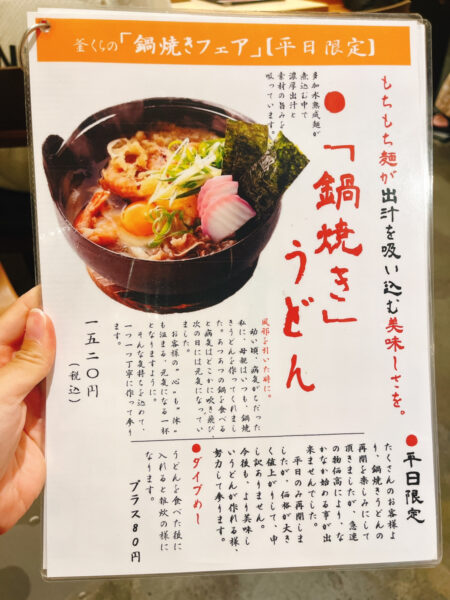 釜くらの「鍋焼きフェア」【平日限定】
もちもち麺が出汁を吸い込む美味しさを。
●「鍋焼き」
うどん
多加水熟成麺が
煮込む中で
濃厚出汁と
素材の旨みを
吸っています。
風邪を引いた時に。
幼い頃、病気がちだった
私に、母親はいつも、鍋焼
きうどんを作ってくれまし
た。あつあつの鍋を食べる
と病気はどこかに吹き飛び、
次の日には元気になってい
ました。
お客様の“心”も“体”
も温まる、元気になる一杯
となりますように。
そんな気持ちを込めて、
一つ一つ丁寧に作って参り
ます。
一五二〇円
（税込）
●平日限定
たくさんのお客様よ
り、鍋焼きうどんの
再開を楽しみにして
頂きましたが、急速
の物価高により、な
かなか始める事が出
来ませんでした。
平日のみ再開しま
したが、価格が大き
く値上がりして、申
し訳ありません。
今後も、より美味し
いうどんが作れる様、
努力して参ります。
●ダイブめし
うどんを食べた後に
入れると雑炊の様に
なります。
プラス80円